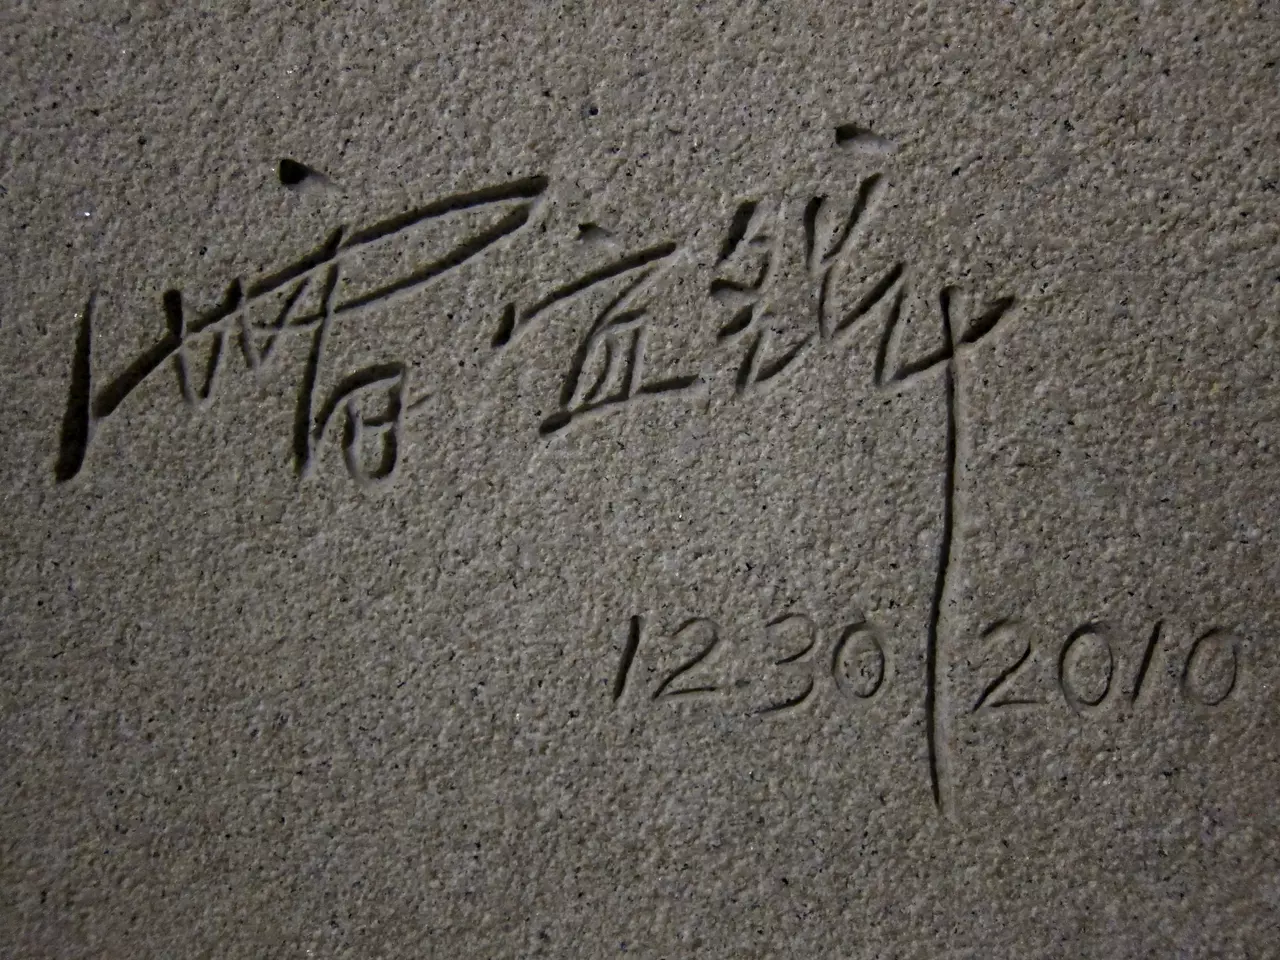 雷宜锌
1230 2010